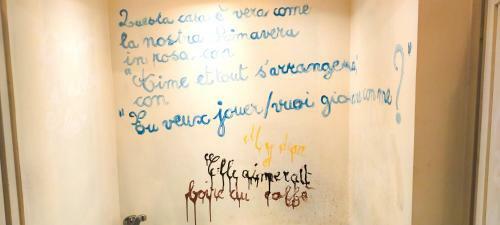 Questa casa è vera come
la nostra Primavera
in rosa, con
"Aime et tout s'arrangera"
con
"Tu veux jouer/vuoi gio me?"
My
Elle aimerait
boire du caffè